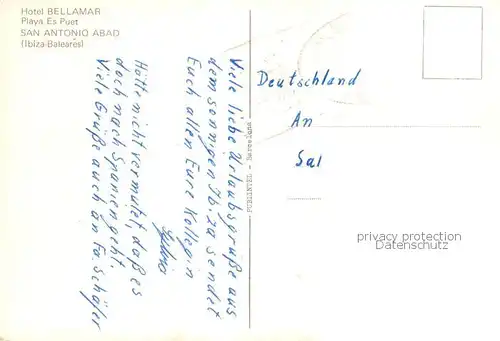 Hotel BELLAMAR
Playa Es Puet
SAN ANTONIO ABAD
(Ibiza-Baleares)
Viele liebe Urlaubsgrüße aus
dem sonnigen Ibiza sendet
Euch allen Eure Kollegin
Hätte nicht vermutet, daß es
doch nach Spanien geht.
Viele Grüße auch an Fa. Schäfer
PUBLINTEL - Barcelona
Deutschland
An
Sal
privacy protection
Datenschutz